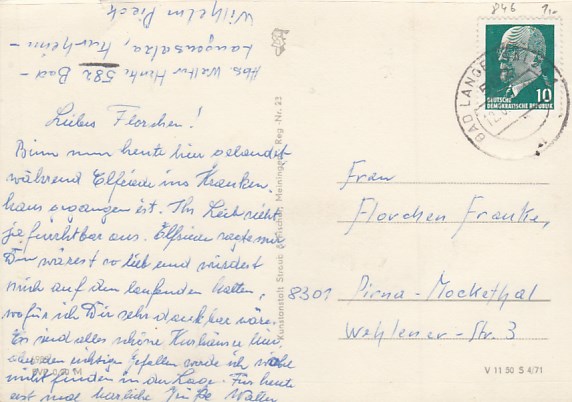 Abs. Walter Henke 582 Bad -
Langensalza, Kurheim -
Wilhelm Pieck
Liebes Florchen!
Binn nun heute hier gelandet
während Elfriede ins Kranken-
haus gegangen ist. Ihr Leib sieht
ja furchtbar aus. Elfriede sagte mir
Du wärest so lieb und würdest
mich auf dem laufenden halten,
wofür ich Dir sehr dankbar wäre.
Es sind alles schöne Kurhäuser hier
aber den richtigen Gefallen werde ich
nicht finden in der Lage. Für heute
erst mal herzliche Grüße Walter
EVP 0,20 M
Kunstanstalt Straub & Fischer, Meiningen Reg.-Nr. 23
846 1,-
BAD LANGENSALZA
10
DEUTSCHE
DEMOKRATISCHE REPUBLIK
Frau
Florchen Franke,
8301 Pirna-Mockethal
Wehlener-Str. 3
V 11 50 S 4/71